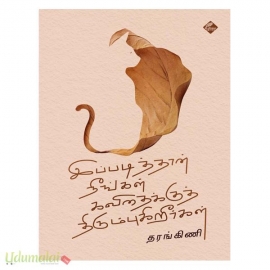 இப்படித்தான்
நீங்கள்
கவிதைக்குத்
திரும்புகிறீர்கள்
தரங்கிணி
Udumalai